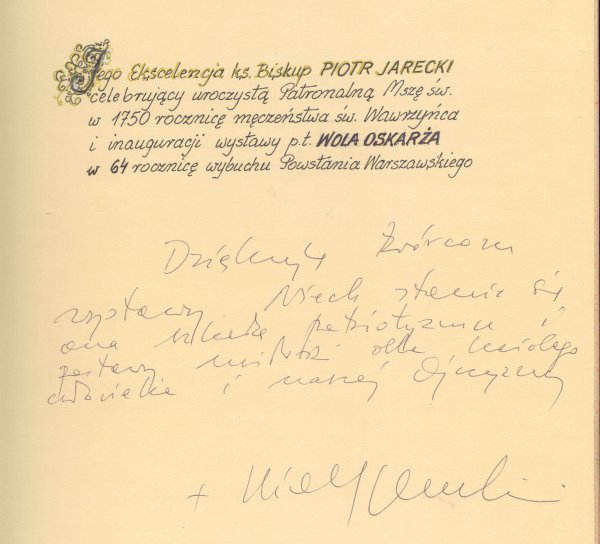 Jego Ekscelencja ks. Biskup PIOTR JARECKI
celebrujący uroczystą Patronalną Mszę św.
w 1750 rocznicę męczeństwa św. Wawrzyńca
i inauguracji wystawy p.t. WOLA OSKARŻA
w 64 rocznicę wybuchu Powstania Warszawskiego
Dziękuję Twórcom
wystawy Niech stanie się
ona szkołą patriotyzmu i
postawy miłości dla każdego
człowieka i naszej Ojczyzny
+